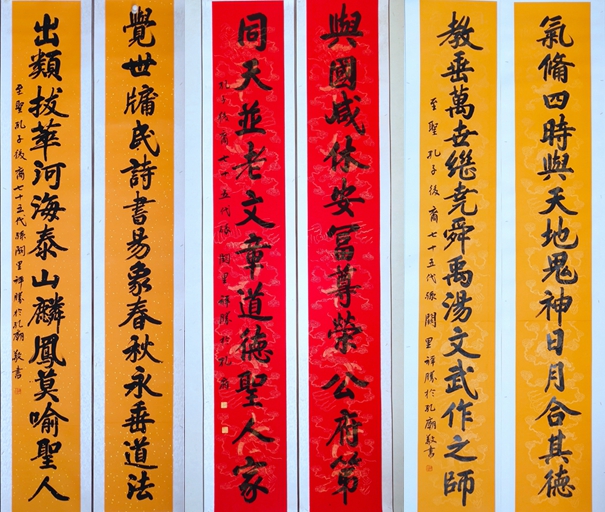 氣備四時與天地鬼神日月合其德
教垂萬世继堯舜禹湯文武作之師
至聖孔子後裔七十五代孫闕里祥勝於孔廟敬書
與國咸休安富尊榮公府第
同天並老文章道德聖人家
孔子後裔七十五代孫闕里祥勝於孔廟
覺世牖民詩書易象春秋永垂道法
出類拔萃河海泰山麟鳳莫喻聖人
至聖孔子後裔七十五代孫闕里祥勝於孔廟敬書